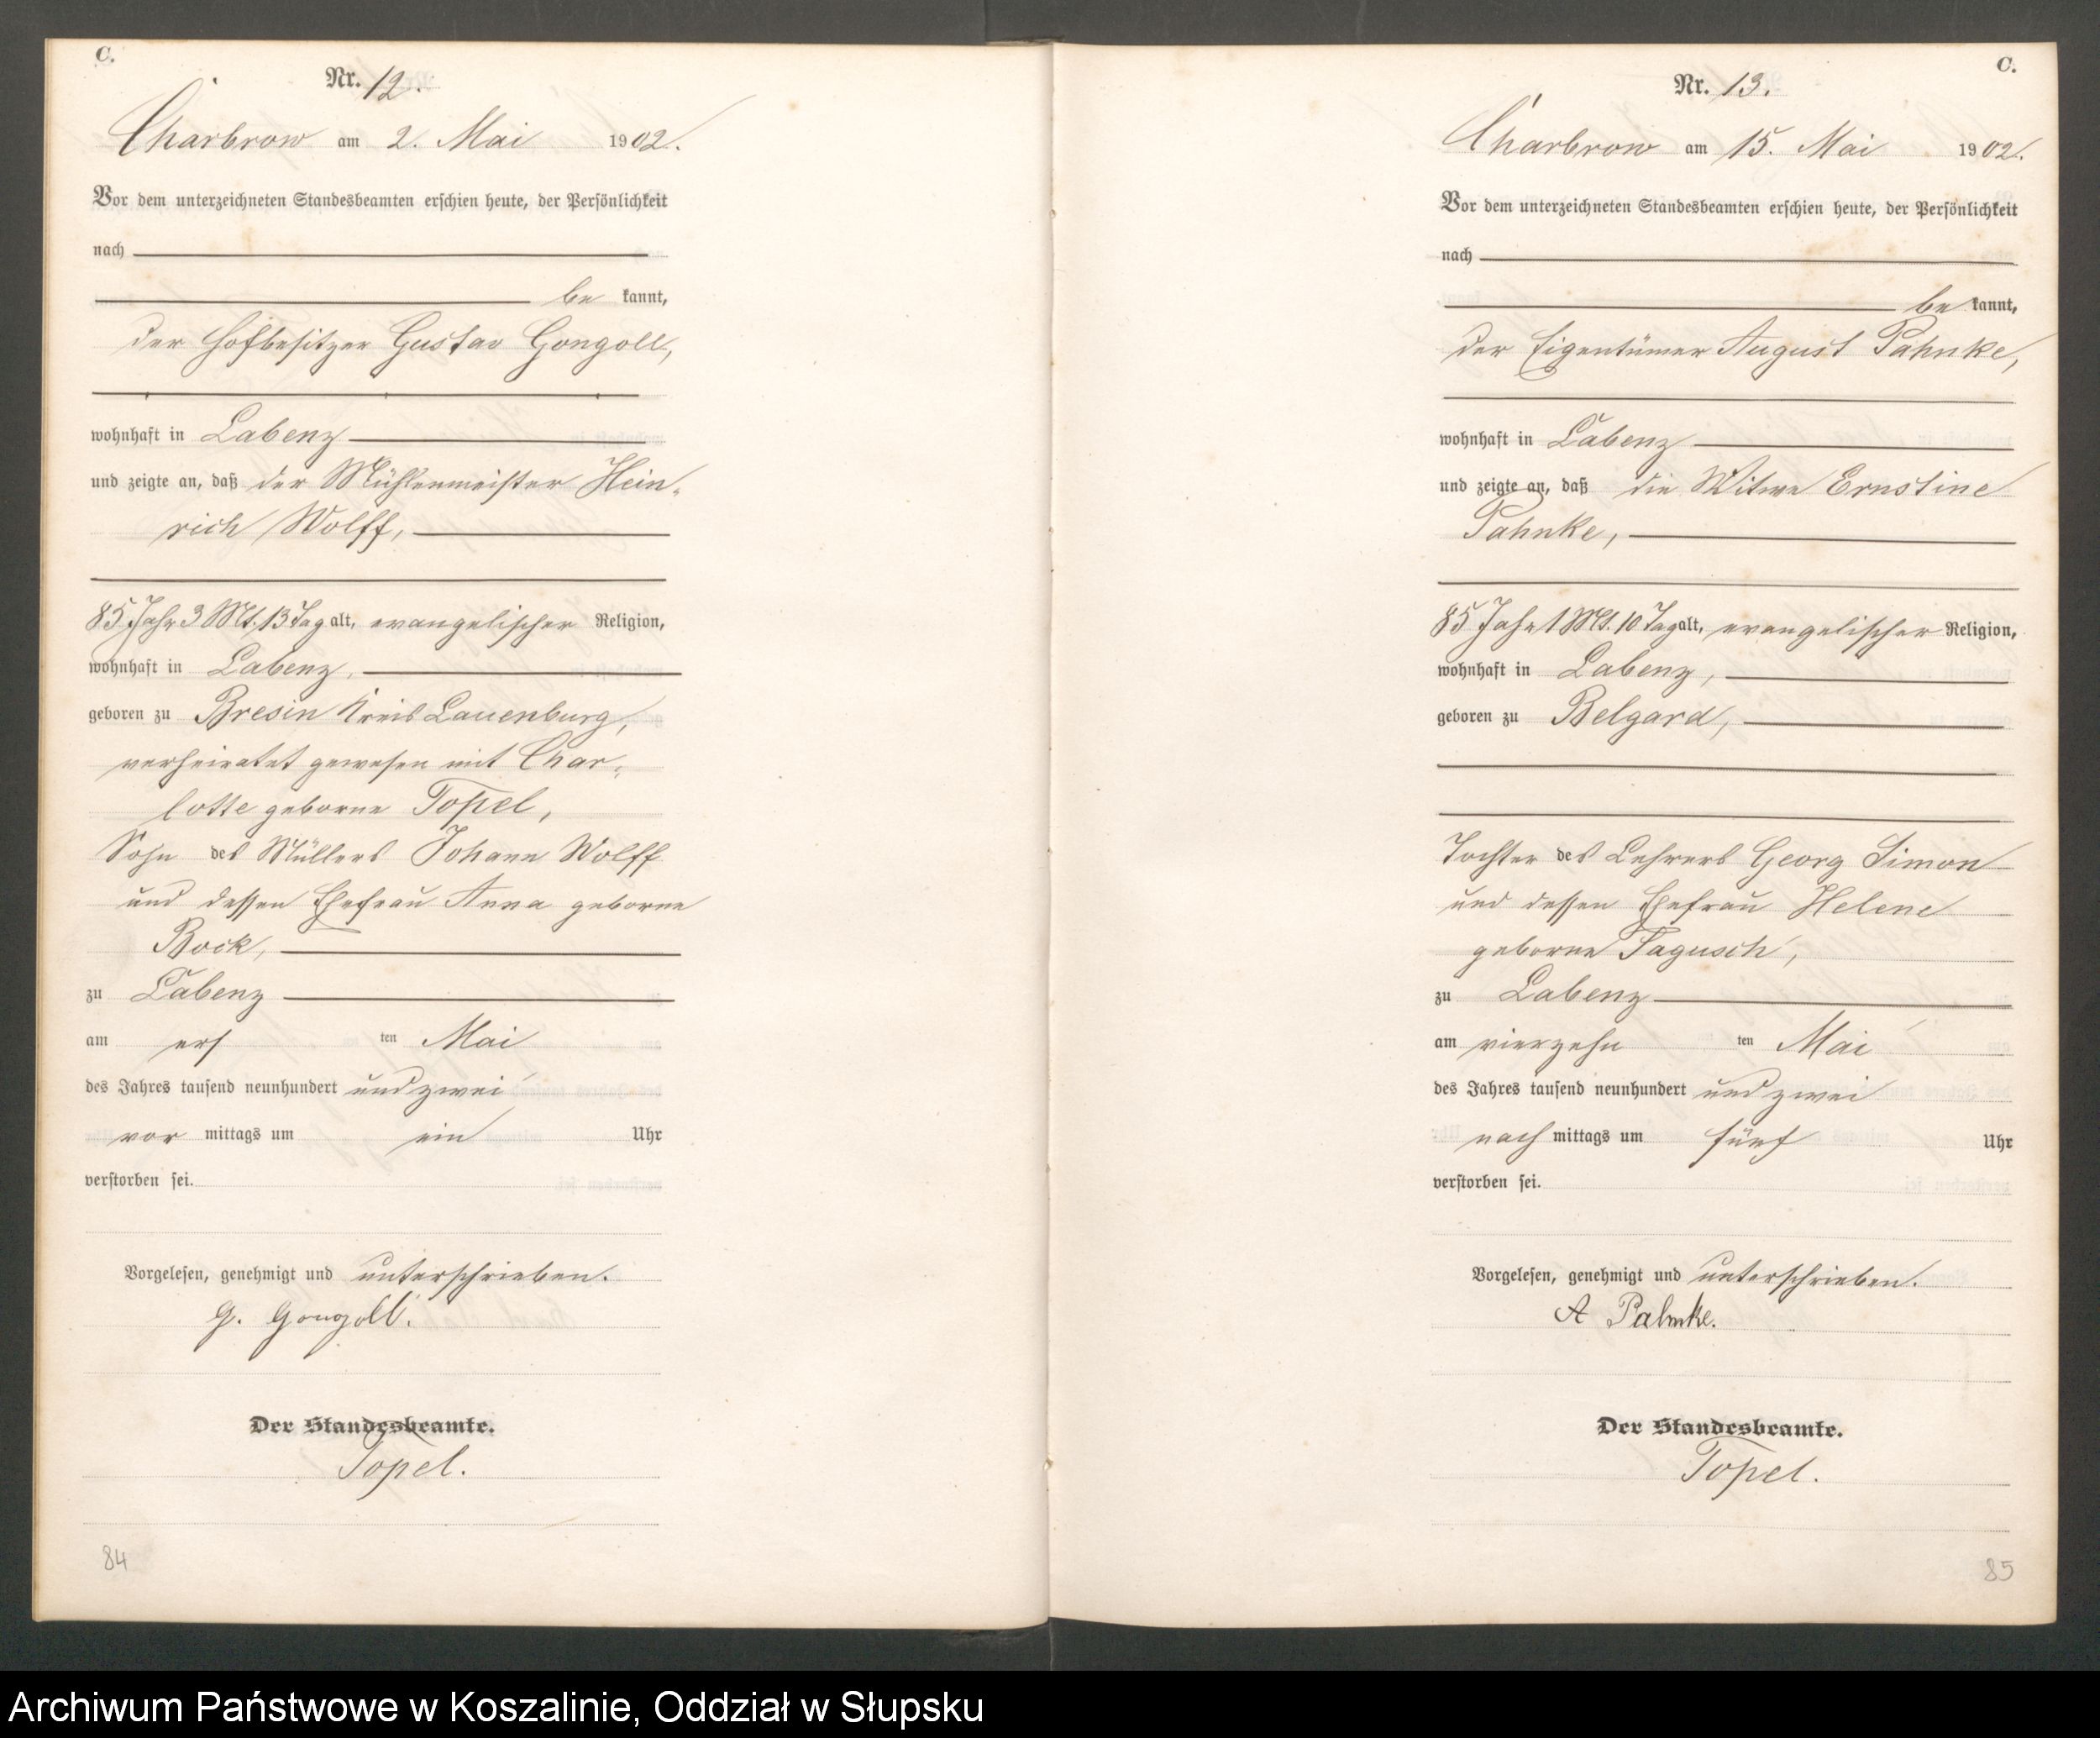 C.
Nr. 12.
Charbrow am 2. Mai 1902.
Vor dem unterzeichneten Standesbeamten erschien heute, der Persönlichkeit
nach
be kannt,
der Hofbesitzer Gustav Gongoll,
wohnhaft in Labenz
und zeigte an, daß der Mühlenmeister Hein-
rich Wolff,
85 Jahr 3 Mt. 13 Tag alt, evangelischer Religion,
wohnhaft in Labenz,
geboren zu Bresin Kreis Lauenburg,
verheiratet gewesen mit Char-
lotte geborne Topel,
Sohn des Müllers Johann Wolff
und dessen Ehefrau Anna geborne
Bock,
zu Labenz
am ers ten Mai
des Jahres tausend neunhundert und zwei
vor mittags um ein Uhr
verstorben sei.
Vorgelesen, genehmigt und unterschrieben.
G. Gongoll.
Der Standesbeamte.
Topel.
84
C.
Nr. 13.
Charbrow am 15. Mai 1902.
Vor dem unterzeichneten Standesbeamten erschien heute, der Persönlichkeit
nach
be kannt,
der Eigentümer August Pahnke,
wohnhaft in Labenz
und zeigte an, daß die Witwe Ernstine
Pahnke,
85 Jahr 1 Mt. 10 Tag alt, evangelischer Religion,
wohnhaft in Labenz,
geboren zu Belgard,
Tochter des Lehrers Georg Simon
und dessen Ehefrau Helene
geborne Tagusch,
zu Labenz
am vierzehn ten Mai
des Jahres tausend neunhundert und zwei
nach mittags um fünf Uhr
verstorben sei.
Vorgelesen, genehmigt und unterschrieben.
A Pahnke.
Der Standesbeamte.
Topel.
85
Archiwum Państwowe w Koszalinie, Oddział w Słupsku